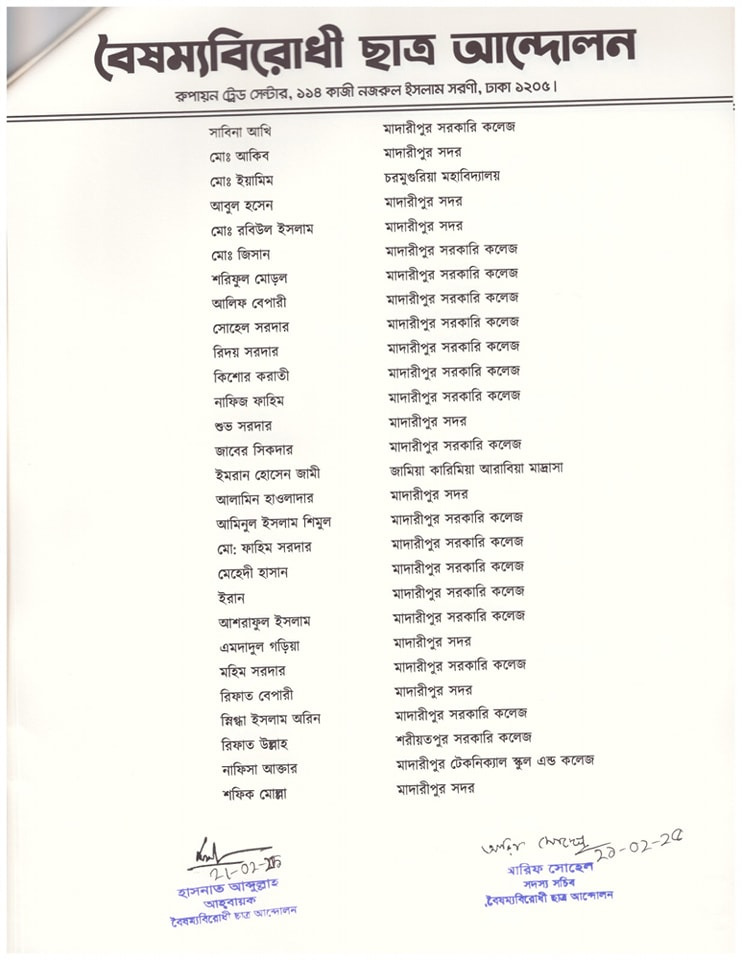 বৈষম্যবিরোধী ছাত্র আন্দোলন
রুপায়ন ট্রেড সেন্টার, ১১৪ কাজী নজরুল ইসলাম সরণী, ঢাকা ১২০৫।
সাবিনা আখি মাদারীপুর সরকারি কলেজ
মোঃ আকিব মাদারীপুর সদর
মোঃ ইয়ামিম চরমুগুরিয়া মহাবিদ্যালয়
আবুল হসেন মাদারীপুর সদর
মোঃ রবিউল ইসলাম মাদারীপুর সদর
মোঃ জিসান মাদারীপুর সরকারি কলেজ
শরিফুল মোড়ল মাদারীপুর সরকারি কলেজ
আলিফ বেপারী মাদারীপুর সরকারি কলেজ
সোহেল সরদার মাদারীপুর সরকারি কলেজ
রিদয় সরদার মাদারীপুর সরকারি কলেজ
কিশোর করাতী মাদারীপুর সরকারি কলেজ
নাফিজ ফাহিম মাদারীপুর সরকারি কলেজ
শুভ সরদার মাদারীপুর সদর
জাবের সিকদার মাদারীপুর সরকারি কলেজ
ইমরান হোসেন জামী জামিয়া কারিমিয়া আরাবিয়া মাদ্রাসা
আলামিন হাওলাদার মাদারীপুর সদর
আমিনুল ইসলাম শিমুল মাদারীপুর সরকারি কলেজ
মো: ফাহিম সরদার মাদারীপুর সরকারি কলেজ
মেহেদী হাসান মাদারীপুর সরকারি কলেজ
ইরান মাদারীপুর সরকারি কলেজ
আশরাফুল ইসলাম মাদারীপুর সরকারি কলেজ
এমদাদুল গড়িয়া মাদারীপুর সদর
মহিম সরদার মাদারীপুর সরকারি কলেজ
রিফাত বেপারী মাদারীপুর সদর
স্নিগ্ধা ইসলাম অরিন মাদারীপুর সরকারি কলেজ
রিফাত উল্লাহ শরীয়তপুর সরকারি কলেজ
নাফিসা আক্তার মাদারীপুর টেকনিক্যাল স্কুল এন্ড কলেজ
শফিক মোল্লা মাদারীপুর সদর
আরিফ সোহেল
হাসনাত আব্দুল্লাহ
আহ্বায়ক
বৈষম্যবিরোধী ছাত্র আন্দোলন
আরিফ সোহেল
সদস্য সচিব
বৈষম্যবিরোধী ছাত্র আন্দোলন